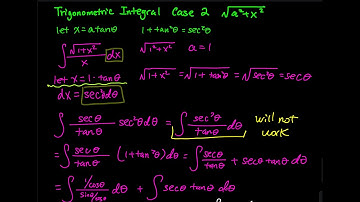 Trigonometric Integral Case 2 √a²+x²
let x = a tanθ 1 + tan²θ = sec²θ
∫ √1+x² / x dx √1²+x² a = 1
let x = 1 · tanθ √1+x² = √1+tan²θ = √sec²θ = secθ
dx = sec²θdθ
∫ secθ / tanθ sec²θdθ = ∫ sec³θ / tanθ dθ will not work
= ∫ secθ / tanθ (1+tan²θ)dθ = ∫ secθ / tanθ + secθ tanθ dθ
= ∫ 1/cosθ / sinθ/cosθ dθ + ∫ secθ tanθ dθ